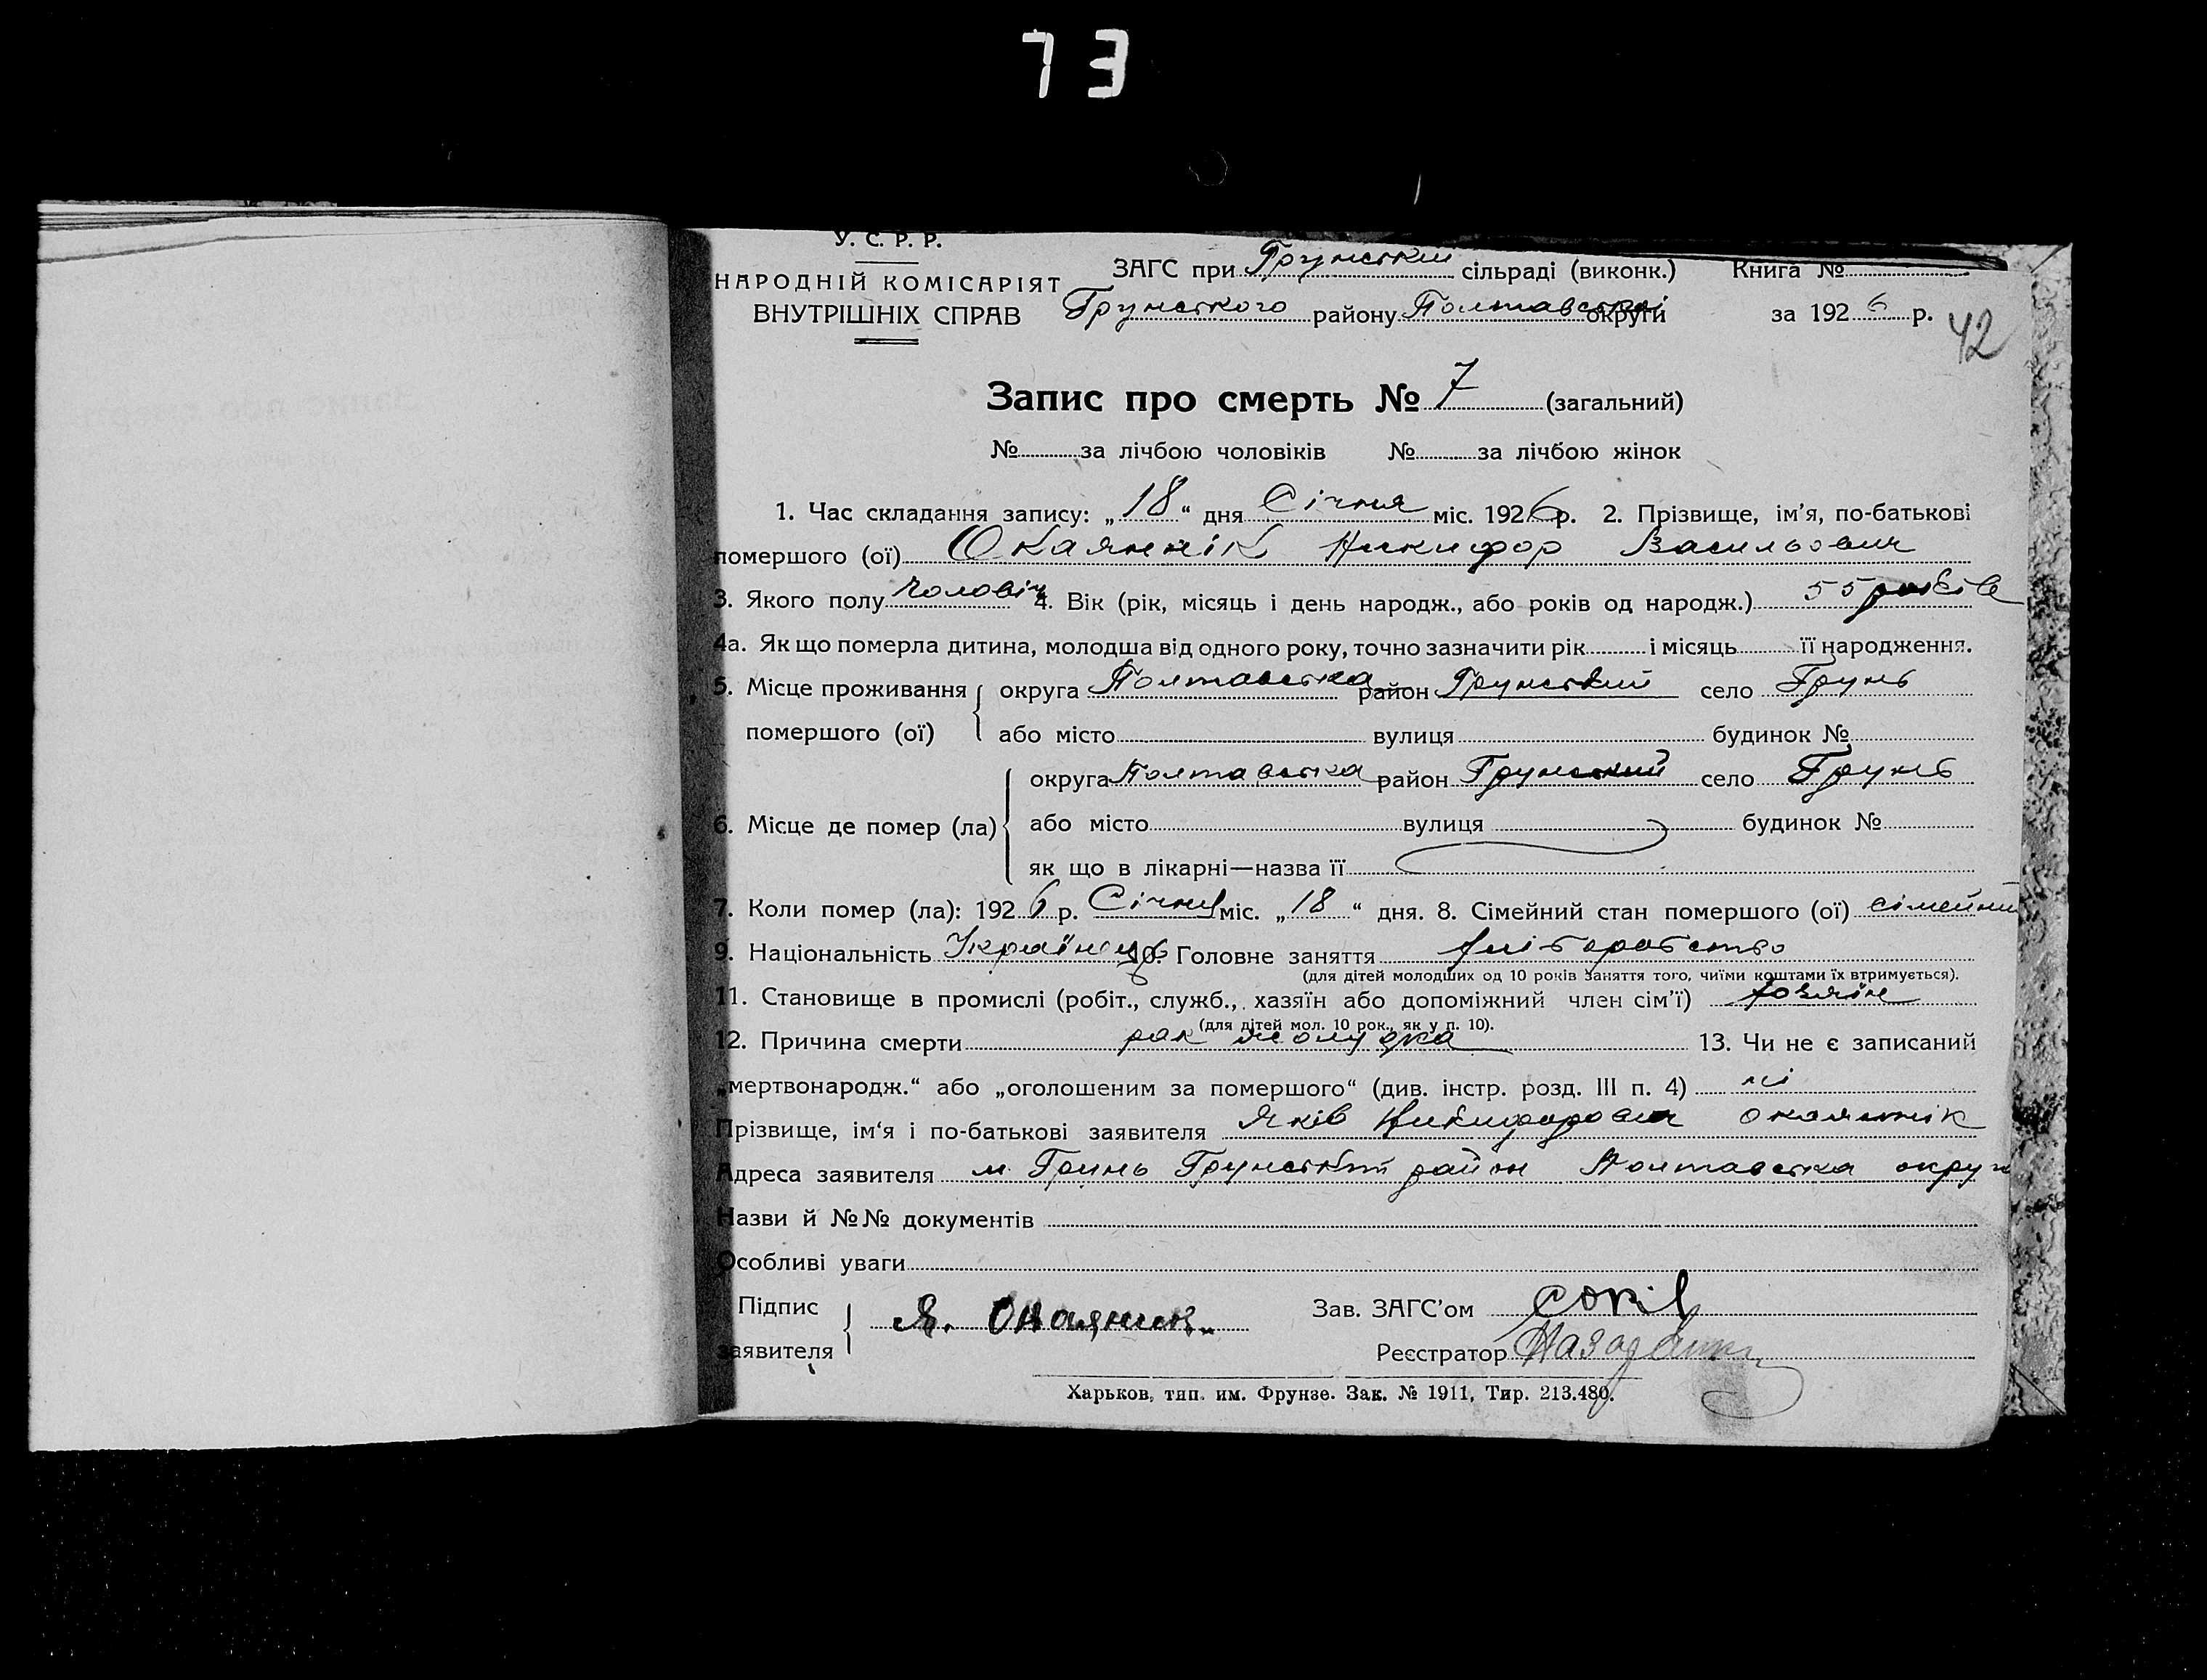 73
У. С. Р. Р.
НАРОДНІЙ КОМІСАРІЯТ
ВНУТРІШНІХ СПРАВ
ЗАГС при Грунський сільраді (виконк.) Книга №
Грунського району Полтавської округи за 1926 р.
42
Запис про смерть № 7 (загальний)
№ за лічбою чоловіків № за лічбою жінок
1. Час складання запису: „18“ дня Січня міс. 1926 р. 2. Прізвище, ім'я, по-батькові
помершого (ої) Окаяннік Никифор Васильович
3. Якого полу чоловіч 4. Вік (рік, місяць і день народж., або років од народж.) 55 років
4а. Як що померла дитина, молодша від одного року, точно зазначити рік і місяць її народження.
5. Місце проживання помершого (ої) округа Полтавська район Грунський село Грунь
або місто вулиця будинок №
6. Місце де помер (ла) округа Полтавська район Грунський село Грунь
або місто вулиця будинок №
як що в лікарні—назва її
7. Коли помер (ла): 1926 р. Січня міс. „18“ дня. 8. Сімейний стан помершого (ої) сімейний
9. Національність Українець 10. Головне заняття хліборобство
(для дітей молодших од 10 років заняття того, чиїми коштами їх втримується).
11. Становище в промислі (робіт., служб., хазяїн або допоміжний член сім'ї) хозяїн
(для дітей мол. 10 рок., як у п. 10).
12. Причина смерти рак жолудка 13. Чи не є записаний
„мертвонародж.“ або „оголошеним за помершого“ (див. інстр. розд. III п. 4) ні
Прізвище, ім'я і по-батькові заявителя Яків Никифорович Окаяннік
Адреса заявителя м. Грунь Грунський район Полтавська округи
Назви й №№ документів
Особливі уваги
Підпис заявителя Я. Окаянник. Зав. ЗАГС'ом
Реєстратор
Харьков, тип. им. Фрунзе. Зак. № 1911, Тир. 213.480.